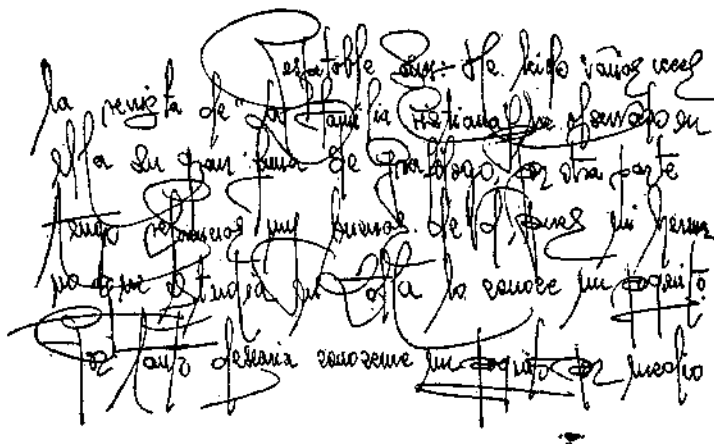 Estatble Sres: He leido varias veces
la revista de la familia cristiana he observado en
ella su gran fama de grafologo, por otra parte
tengo referencias muy buenas de Vd, pues mi herma
no que estudia en ella lo conoce un poquito
Por tanto desearia conocerme un poquito por medio